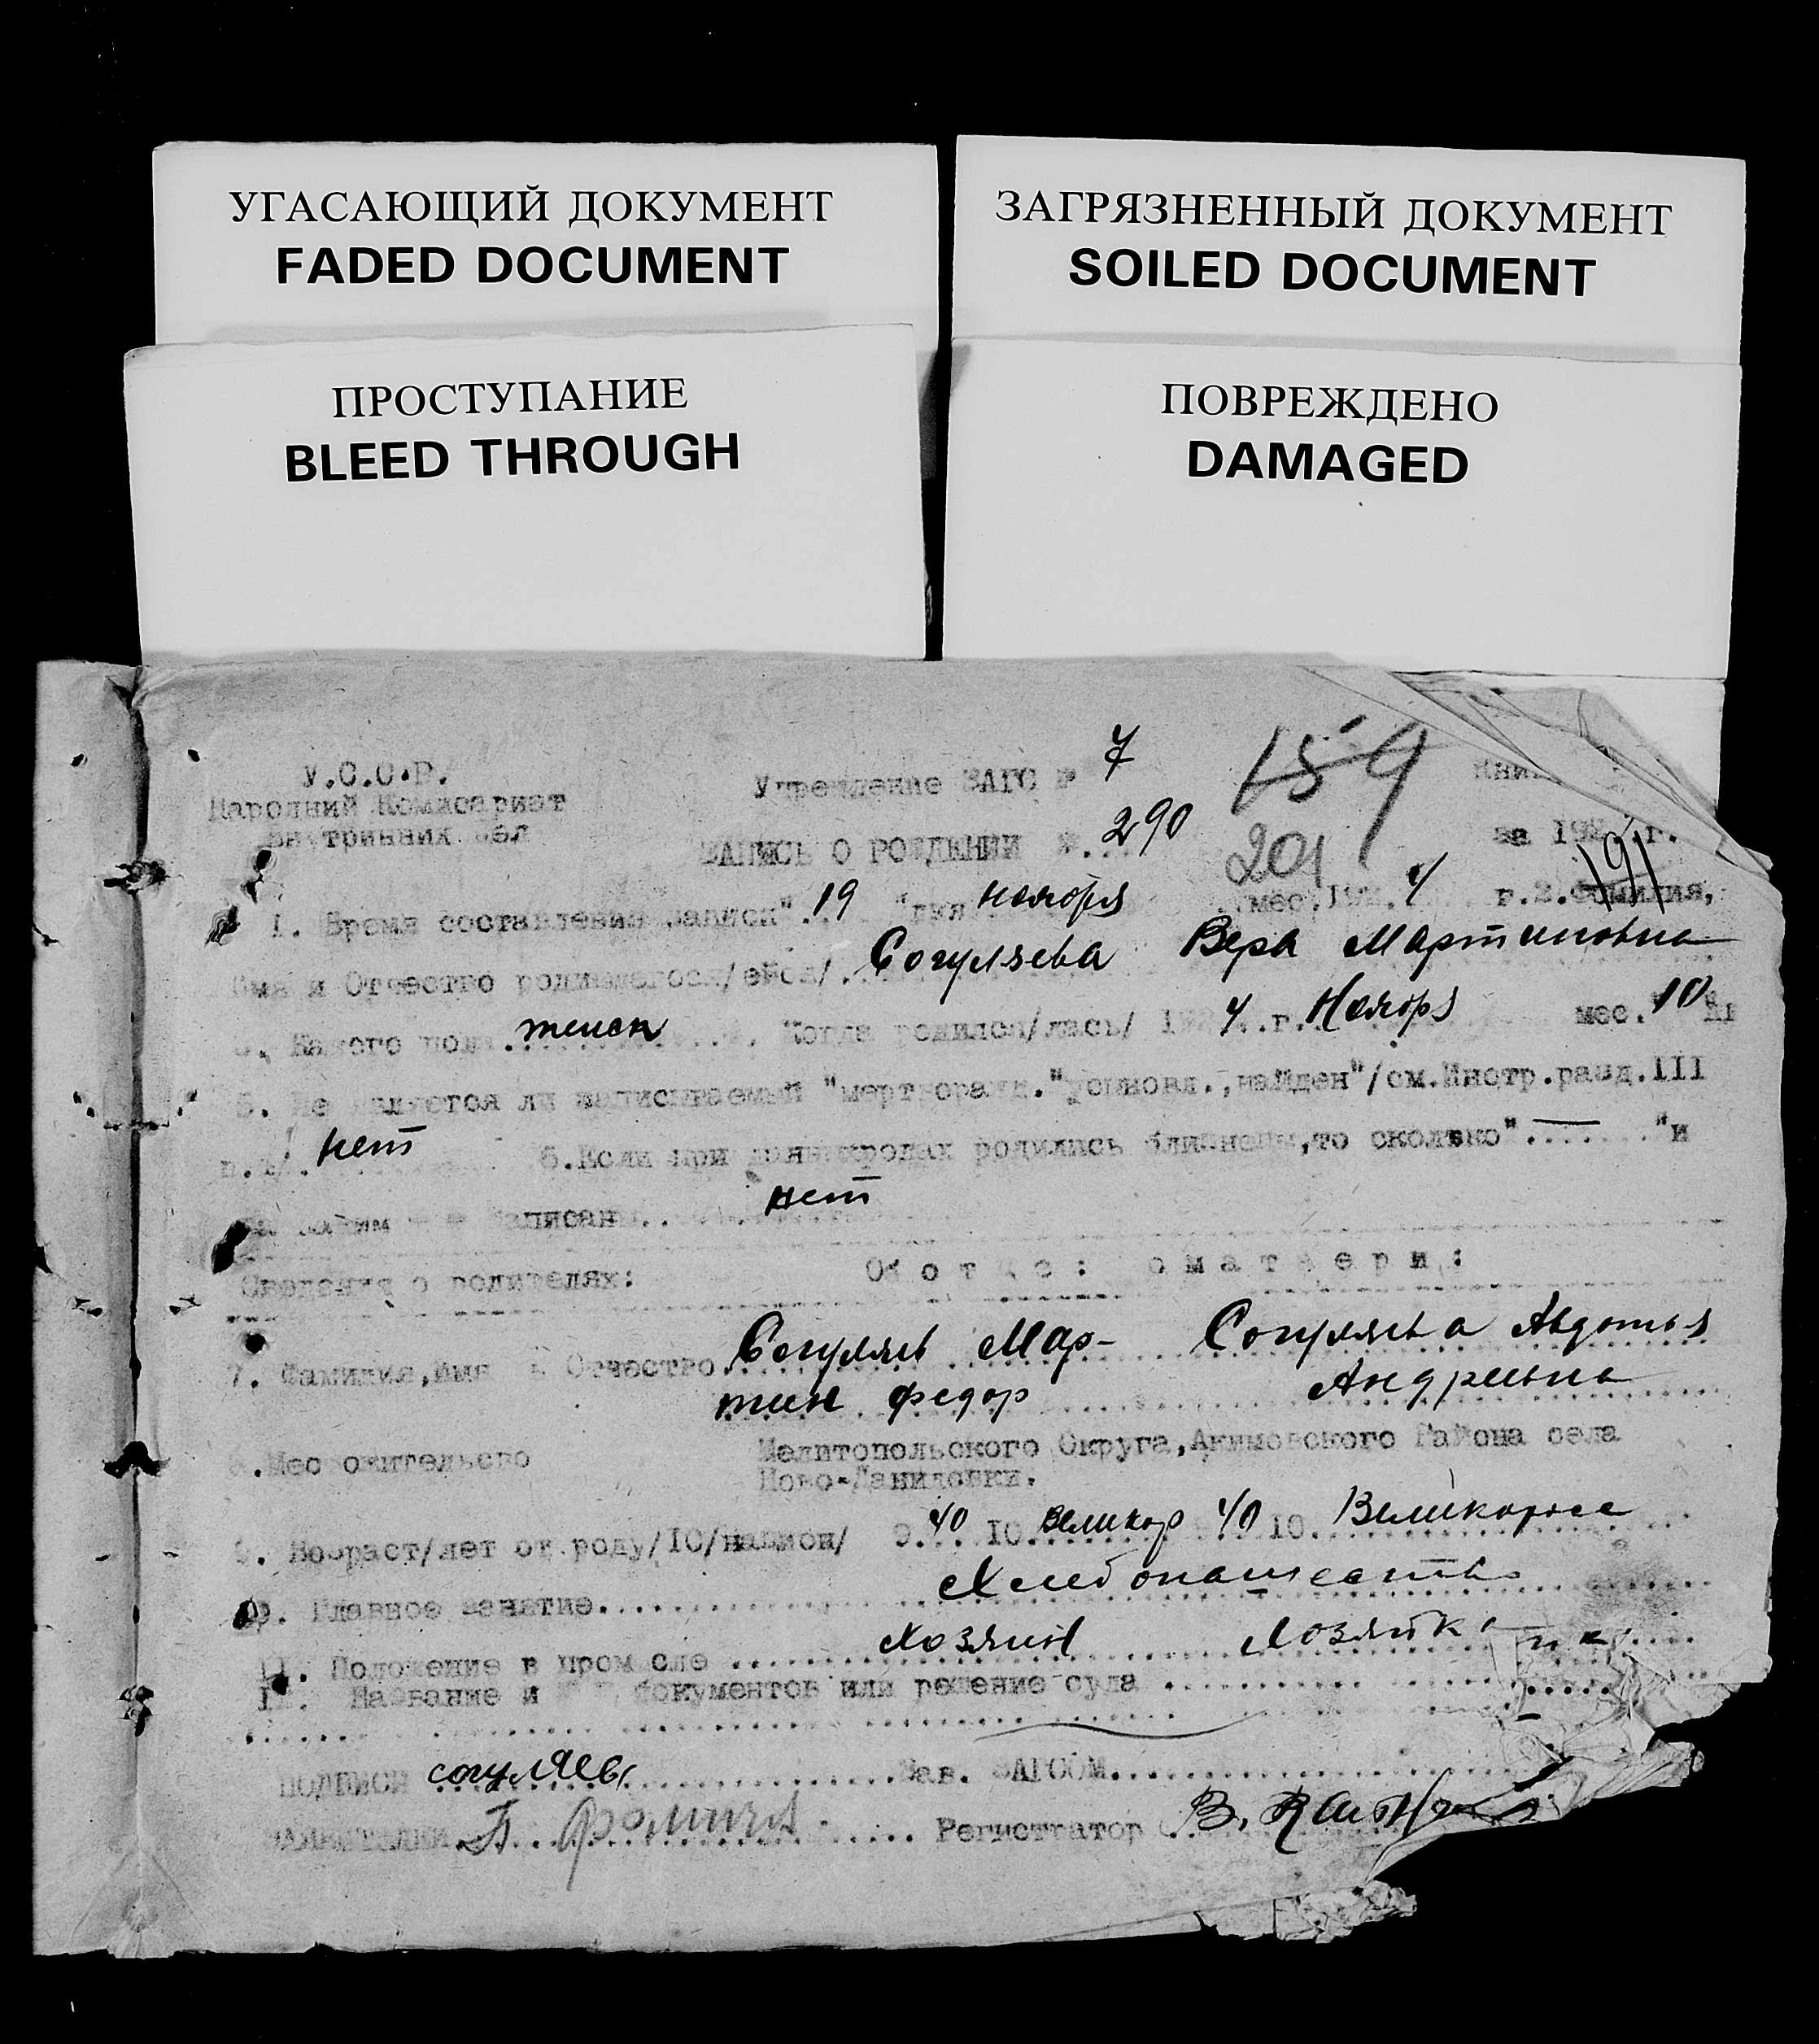 УГАСАЮЩИЙ ДОКУМЕНТ
FADED DOCUMENT
ЗАГРЯЗНЕННЫЙ ДОКУМЕНТ
SOILED DOCUMENT
ПРОСТУПАНИЕ
BLEED THROUGH
ПОВРЕЖДЕНО
DAMAGED
У.С.С.Р.
Народний Комисариат
Внутринних Дел
Учреждение ЗАГС № 7
159
ЗАПИСЬ О РОЖДЕНИИ №... 290
201
за 192 г.
191
1. Время составления записи". 19 "дня ноября мес.192. 4 г.2.Фамилия,
Имя и Отчество родившегося/ейся/. Согуляева Вера Мартиновна
3. Какого пола. женск Когда родился/лась/ 192 4 г. Ноябрь мес. 10
5. Не является ли записываемый "мертворожд." "найден"/см.Инстр.разд.III
нет 6.Если при родах родились близнецы,то сколько". — "и
записаны.. нет
Сведения о родителях: Об отце: о матери:
7. Фамилия,имя и Отчество. Согуляев Мар- Согуляева Авдотья
тин Федор Андревна
8.Местожительство Мелитопольского Округа,Акимовского Района села
Ново-Даниловки.
9. Возраст/лет от роду/10/национ/ 9. 40 10. великор 40 10. Великоросс
Главное занятие. Хлебопашество
11. Положение в промысле Хозяин Хозяйка
Название и документов или решение суда
ПОДПИСИ согуляев Зав. ЗАГСОМ.
Регистратор В.